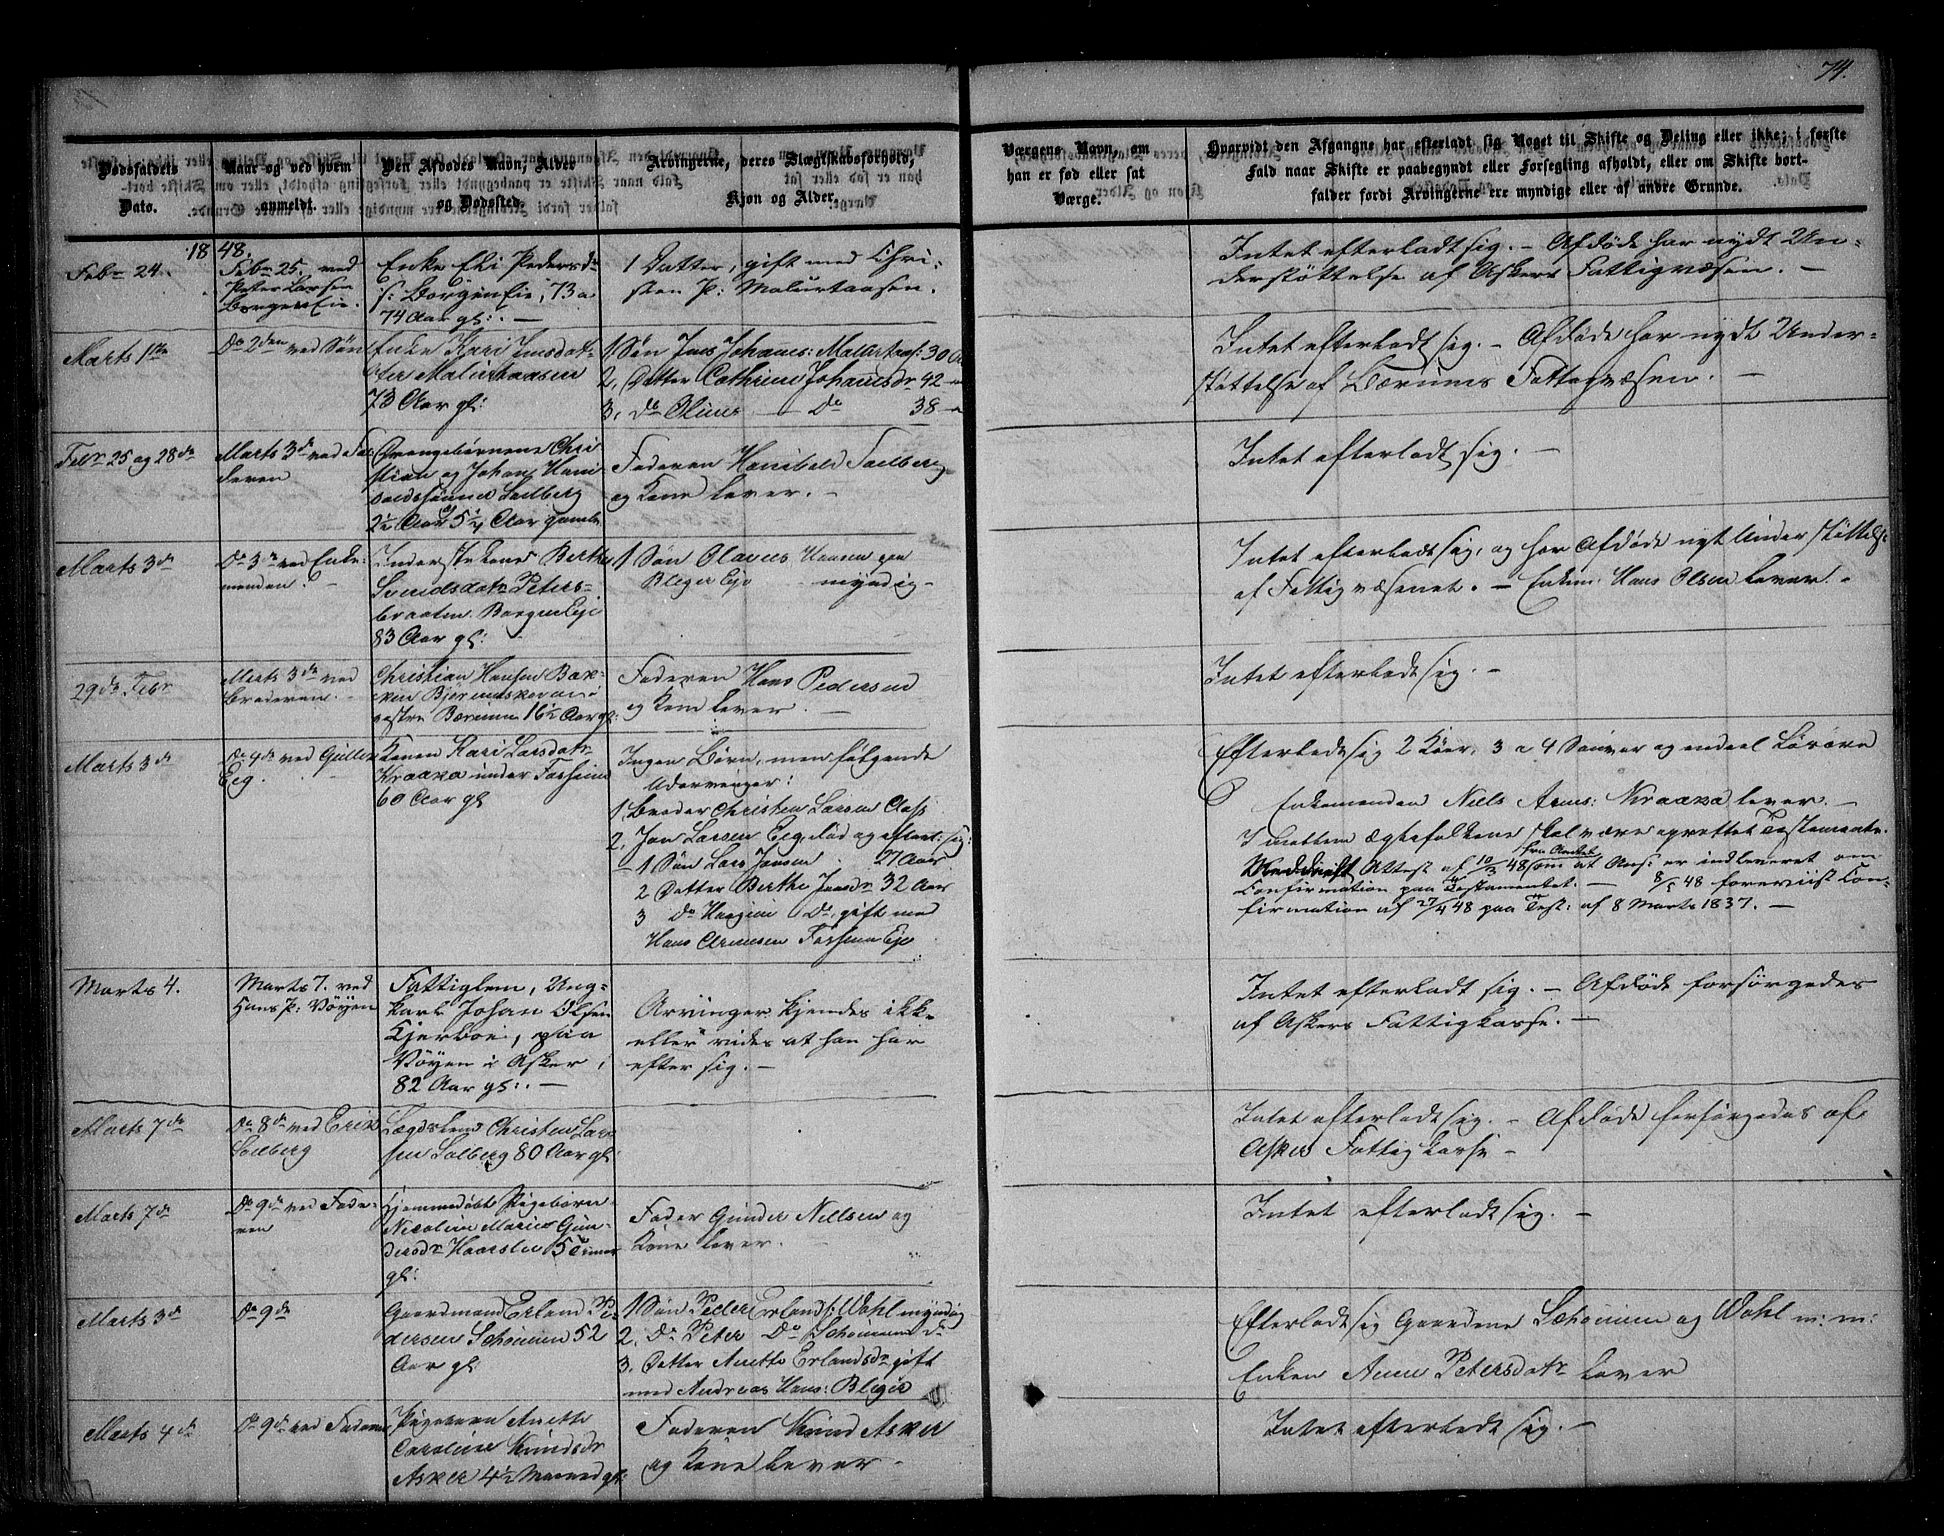 74.
Dødsfaldets
Dato.
Naar og ved hvem
anmeldt.
Den Afdødes Navn, Alder
og Dødssted.
Arvingerne, deres Slægtskabsforhold,
Kjøn og Alder.
Værgens Navn, om
han er fød eller sat
Værge.
Hvorvidt den Afgangne har efterladt sig Noget til Skifte og Deling eller ikke; i første
Fald naar Skifte er paabegyndt eller Forsegling afholdt, eller om Skifte bort-
falder fordi Arvingerne ere myndige eller af andre Grunde.
1848.
Feb. 24.
Feb. 25. ved
Peter Larsen
Borgen Eie.
Enke Eli Pedersd.
Borgen Eie, 73 a
74 Aar gl:. —
1 Datter, gift med Chri-
sten P: Malurtaasen.
Intet efterladt sig. — Afdøde har nydt Un-
derstøttelse af Askers Fattigvæsen. —
Marts 1ste
Do 2den ved Søn
Enke Kari Jensdat-
ter Malurtaasen
73 Aar gl:
1. Søn Jens Johannes: Malurtaas: 30 A
2. Datter Cathrine Johannesdr 42 —
3. do Oline — Do 38 —
Intet efterladt sig. — Afdøde har nydt Under-
støttelse af Bærums Fattigvæsen. —
Febr 25 og 28de
Marts 3de ved Fa-
deren
Drengebørnene Chri
stian og Johan Hani
baldssønner Solberg
2½ Aar og 5¼ Aar gamle
Faderen Hanibald Solberg
og Kone lever. —
Intet efterladt sig. —
Marts 3de
Do 3de ved Enke-
manden
Inderstekone Berthe
Svendsdatr Peters-
braaten Borgen Eje
83 Aar gl:
1 Søn Olaves Hansen paa
Bleger Eje — myndig —
Intet efterladt sig, og har Afdøde nydt Understøttelse
af Fattigvæsenet. — Enkem. Hans Olsen lever. —
29de Febr
Marts 3de ved
Broderen. —
Christian Hansen Bak-
ken Bjerumskoven i
vestre Bærum 16½ Aar gl:
Faderen Hans Pedersen
og Kone lever. —
Intet efterladt sig. —
Marts 3de
Do 4de ved Gullik
Eeg.
Konen Kari Larsdatr
Kraaka under Tosseim
60 Aar gl
Ingen Børn, men følgende
Udarvinger:
1. Broder Christen Larsen Aas
2. Jon Larsen Eeg, død og efterl: sig:
1 Søn Lars Jonsen 27 Aar
2 Datter Berthe Jonsdr 32 Aar
3 Do Do, gift med
Hans Arnesen Tosseim Eje
Efterladt sig 2 Kiør, 3 a 4 Souver og endeel Løsøre
Enkemanden Niels Arnes: Kraaka lever. —
Imellem Ægtefolkene skal være oprettet Testamente.
Attest af 10/3 48 fra Amtet om at Ans: er indleveret om
Confirmation paa Testamentet. — 8/5 48 foreviist Con-
firmation af 27/4 48 paa Test: af 8 Marts 1837. —
Marts 4.
Marts 7. ved
Hans P: Vøyen
Fattiglem, Ung-
karl Johan Olsen
Kjerboe, paa
Vøyen i Asker,
82 Aar gl:. —
Arvinger kjendes ikke
eller vides at han har
efter sig. —
Intet efterladt sig. — Afdøde forsørgedes
af Askers Fattigkasse. —
Marts 7de
Do 8de ved Erik
Solberg
Lægdslem Christen Lar
sen Solberg 80 Aar gl:
Intet efterladt sig. — Afdøde forsørgedes af
Asker Fattigkasse —
Marts 7de
Do 9de ved Fade-
ren
Hjemmedøbt Pigebørn
Nicoline Marie Gun-
dersdr Haarslev 5 Timer
gl:
Fader Gunder Nielsen og
Kone lever.
Intet efterladt sig. —
Marts 3de
Do 9de
Gaardmand Erland Pe-
dersen Schouen 52
Aar gl:
1 Søn Peder Erlands: Wahl myndig
2. Do Peter Do Schouen do
3. Datter Anette Erlandsdr gift
med Andreas Hans: Bleger
Efterladt sig Gaardene Schouen og Wahl m: m:
Enken Anne Petersdatr lever
Marts 4de
Do 9de ved Faderen
Pigebarn Anette
Caroline Knudsdr
Asker 4½ Maaned gl:
Faderen Knud Asker
og Kone lever —
Intet efterladt sig. —